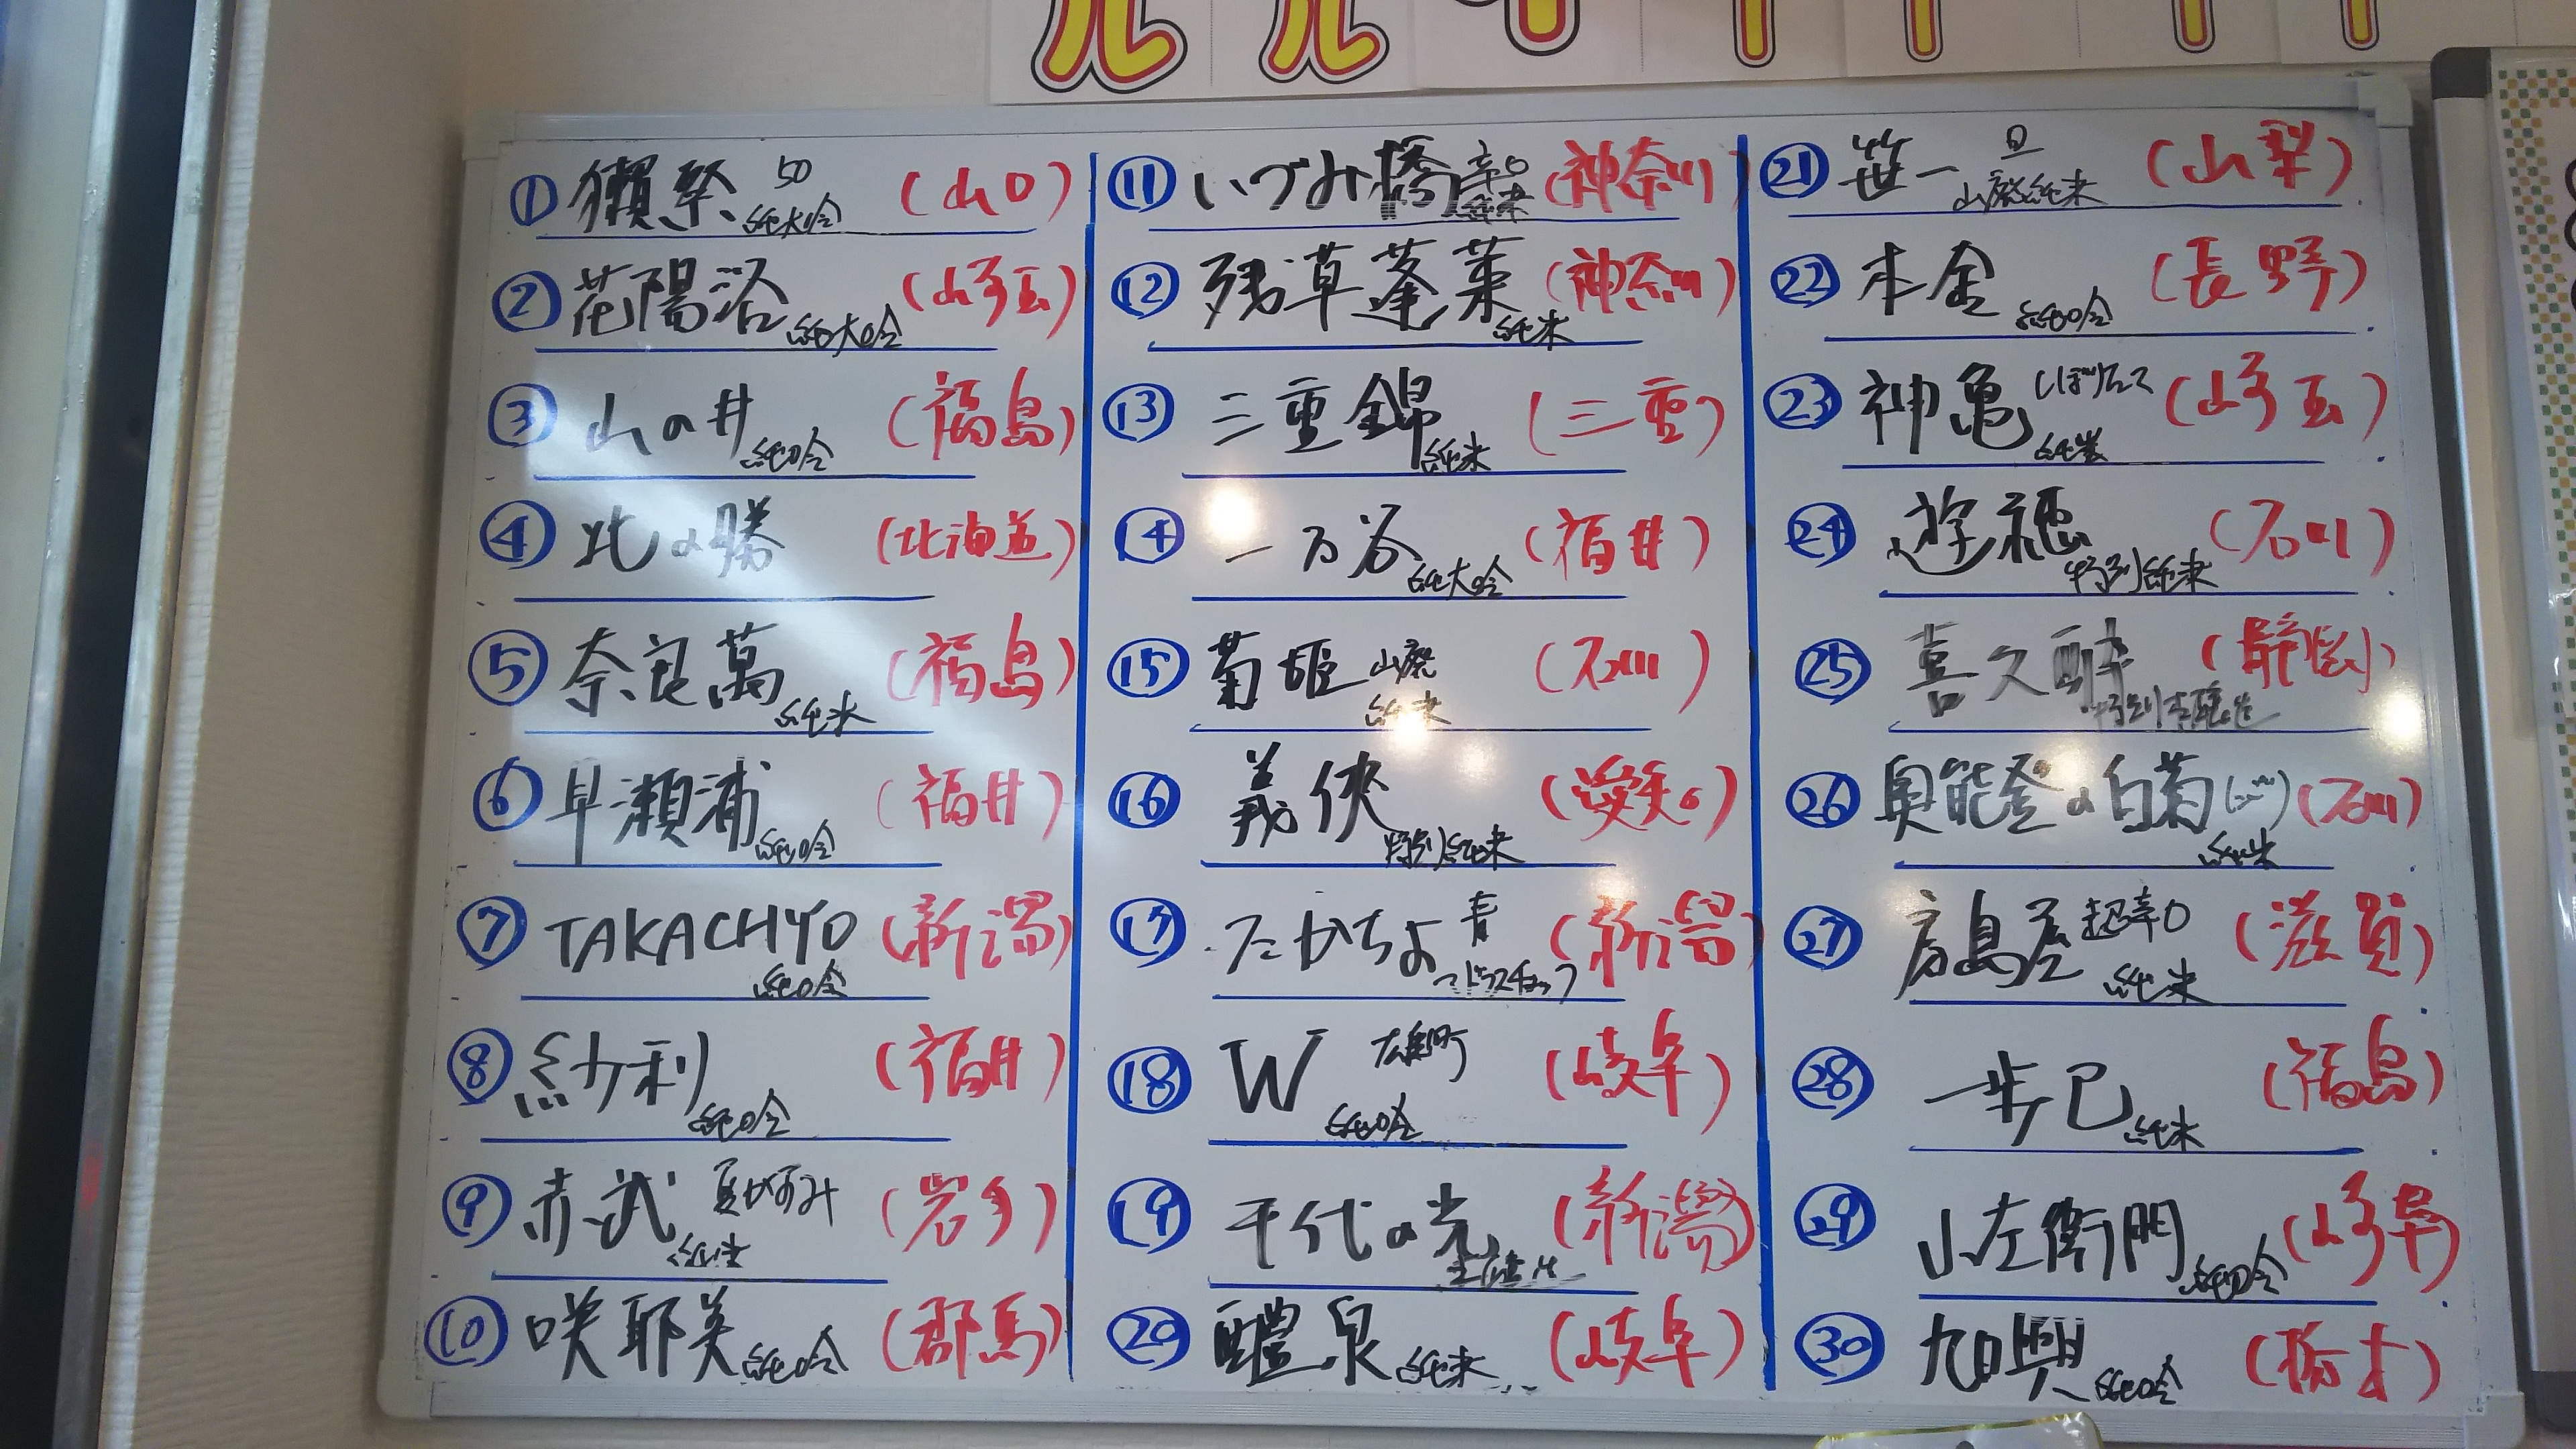 ① 獺祭 50 純大吟 (山口)
② 花陽浴 純大吟 (埼玉)
③ 山の井 純吟 (福島)
④ 北の勝 (北海道)
⑤ 奈良萬 純米 (福島)
⑥ 早瀬浦 純吟 (福井)
⑦ TAKACHYO 純吟 (新潟)
⑧ 紗利 純吟 (福井)
⑨ 赤武 夏がすみ 純米 (岩手)
⑩ 咲耶美 純吟 (郡馬)
⑪ いづみ橋 辛口 純米 (神奈川)
⑫ 残草蓬莱 純米 (神奈川)
⑬ 三重錦 純米 (三重)
⑭ 一乃谷 純大吟 (福井)
⑮ 菊姫 山廃 純米 (石川)
⑯ 義侠 特別純米 (愛知)
⑰ たかちよ 青 (新潟)
⑱ W 雄町 純吟 (岐阜)
⑲ 千代の光 (新潟)
⑳ 醴泉 純米 (岐阜)
㉑ 笹一 旦 山廃純米 (山梨)
㉒ 本金 純吟 (長野)
㉓ 神亀 しぼりたて 純米 (埼玉)
㉔ 遊穂 特別純米 (石川)
㉕ 喜久酔 特別本醸造 (静岡)
㉖ 奥能登の白菊 純米 (石川)
㉗ 廣島屋 超辛口 純米 (滋賀)
㉘ 一歩己 純米 (福島)
㉙ 小左衛門 純吟 (岐阜)
㉚ 旭興 純吟 (栃木)